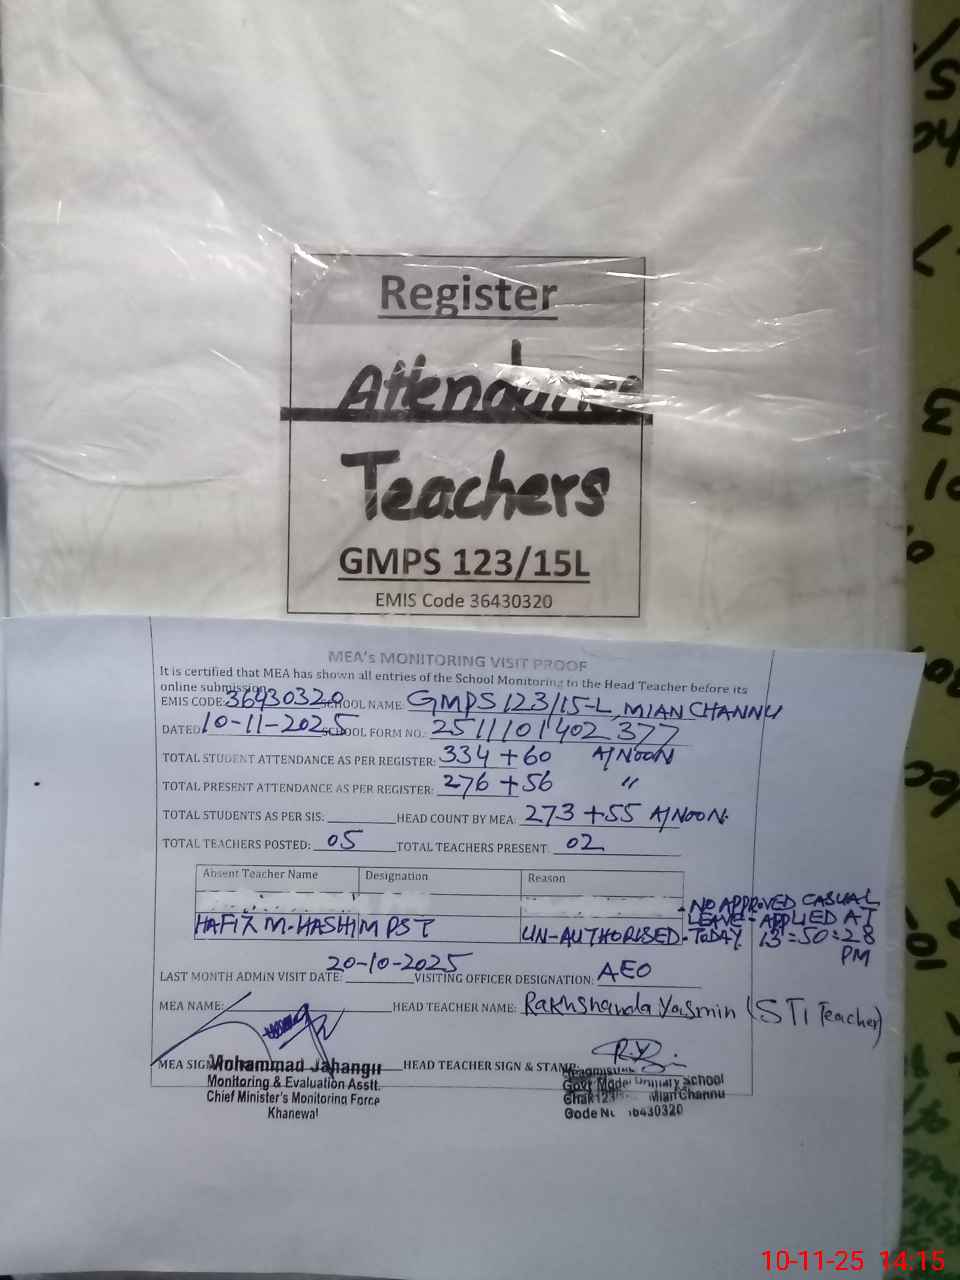 Register
Attendance
Teachers
GMPS 123/15L
EMIS Code 36430320
MEA's MONITORING VISIT PROOF
It is certified that MEA has shown all entries of the School Monitoring to the Head Teacher before its
online submission.
EMIS CODE: 36430320 SCHOOL NAME: GMPS 123/15-L, MIAN CHANNU
DATED 10-11-2025 SCHOOL FORM NO.: 2511101402377
TOTAL STUDENT ATTENDANCE AS PER REGISTER: 334 + 60 A/NOON
TOTAL PRESENT ATTENDANCE AS PER REGISTER: 276 + 56 "
TOTAL STUDENTS AS PER SIS: HEAD COUNT BY MEA: 273 + 55 A/NOON.
TOTAL TEACHERS POSTED: 05 TOTAL TEACHERS PRESENT: 02
Absent Teacher Name Designation Reason
HAFIZ M. HASHIM PST UN-AUTHORISED - NO APPROVED CASUAL
LEAVE - APPLIED AT
TODAY 13:50:28
PM
LAST MONTH ADMIN VISIT DATE: 20-10-2025 VISITING OFFICER DESIGNATION: AEO
MEA NAME: HEAD TEACHER NAME: Rakhshanda Yasmin (STI Teacher)
MEA SIGN HEAD TEACHER SIGN & STAMP:
Mohammad Jahangir
Monitoring & Evaluation Asstt.
Chief Minister's Monitoring Force
Khanewal
Govt Model Primary School
Mian Channu
Code
10-11-25 14:15